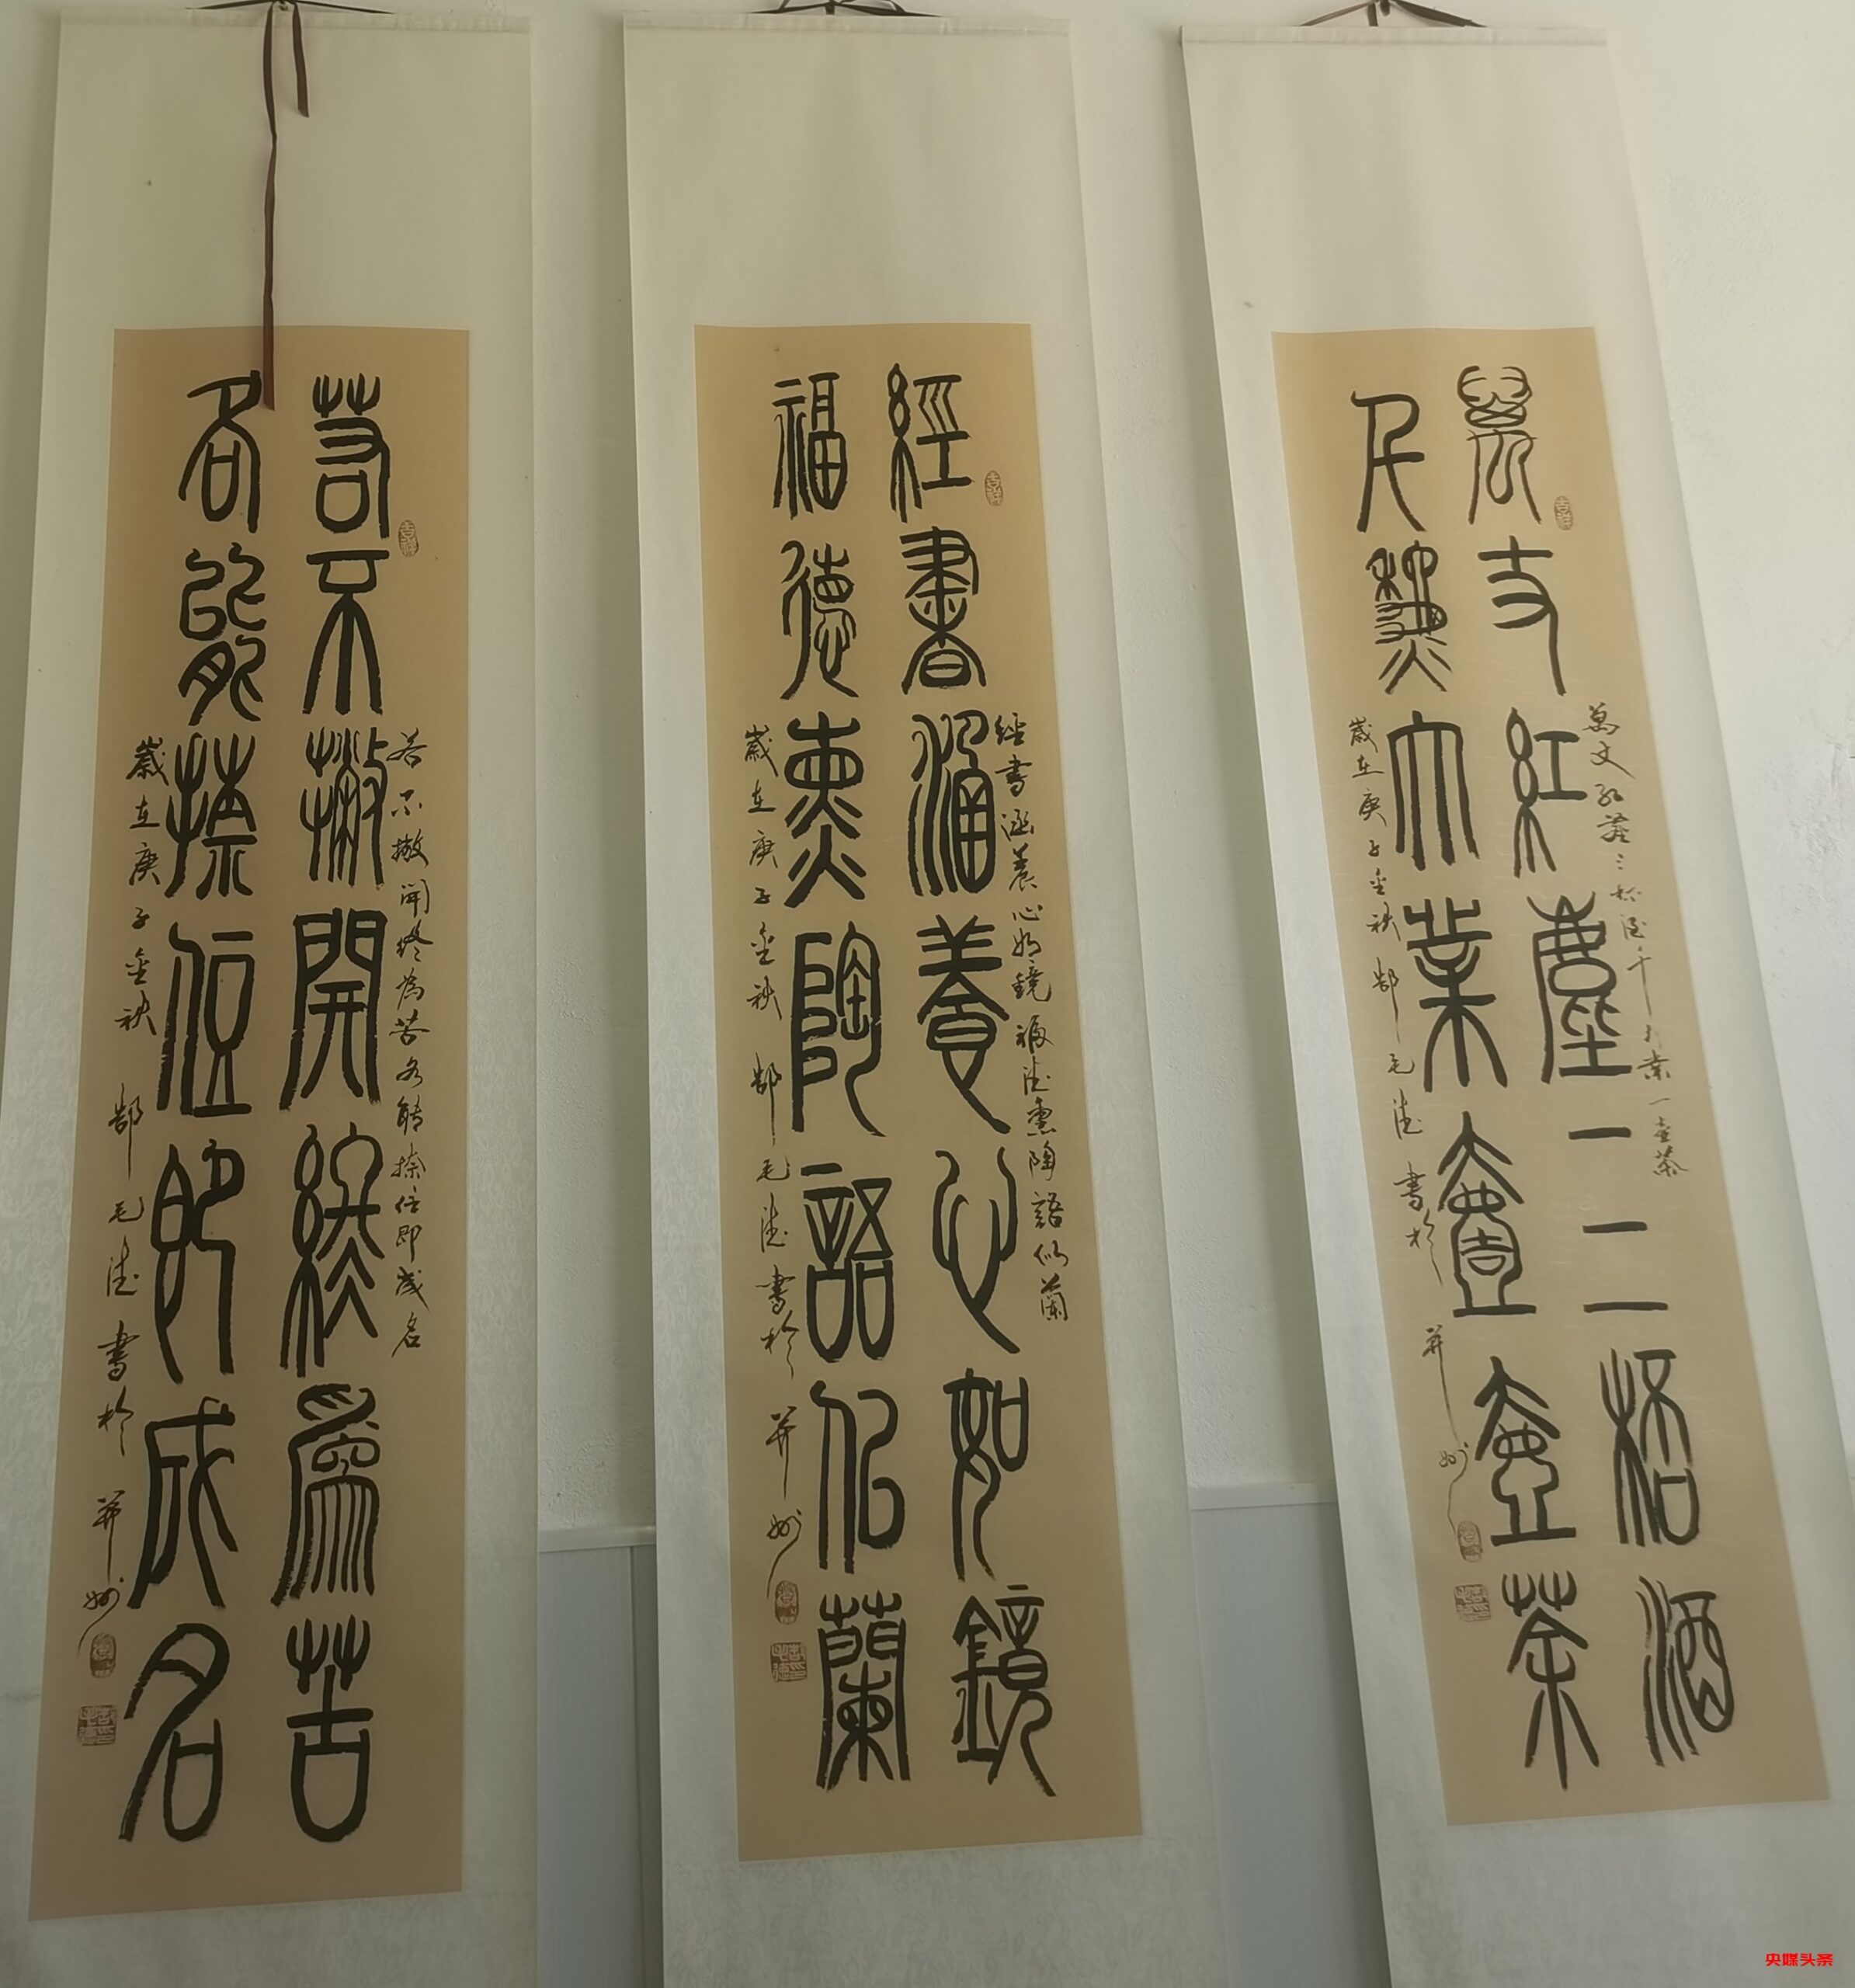 萬丈紅塵三杯酒
千秋大業壹壺茶
萬丈紅塵三杯酒千大業一壺茶
歲在庚子金秋 郜毛德 書於并州
吉祥
經書涵養心如鏡
福德薰陶語似蘭
經書涵養心如鏡福德薰陶語似蘭
歲在庚子金秋 郜毛德書於并州
吉祥
若不撇開終爲苦
各能捺住即成名
若不撇開終為苦各能捺住即成名
歲在庚子金秋 郜毛德書於并州
吉祥
央媒头条